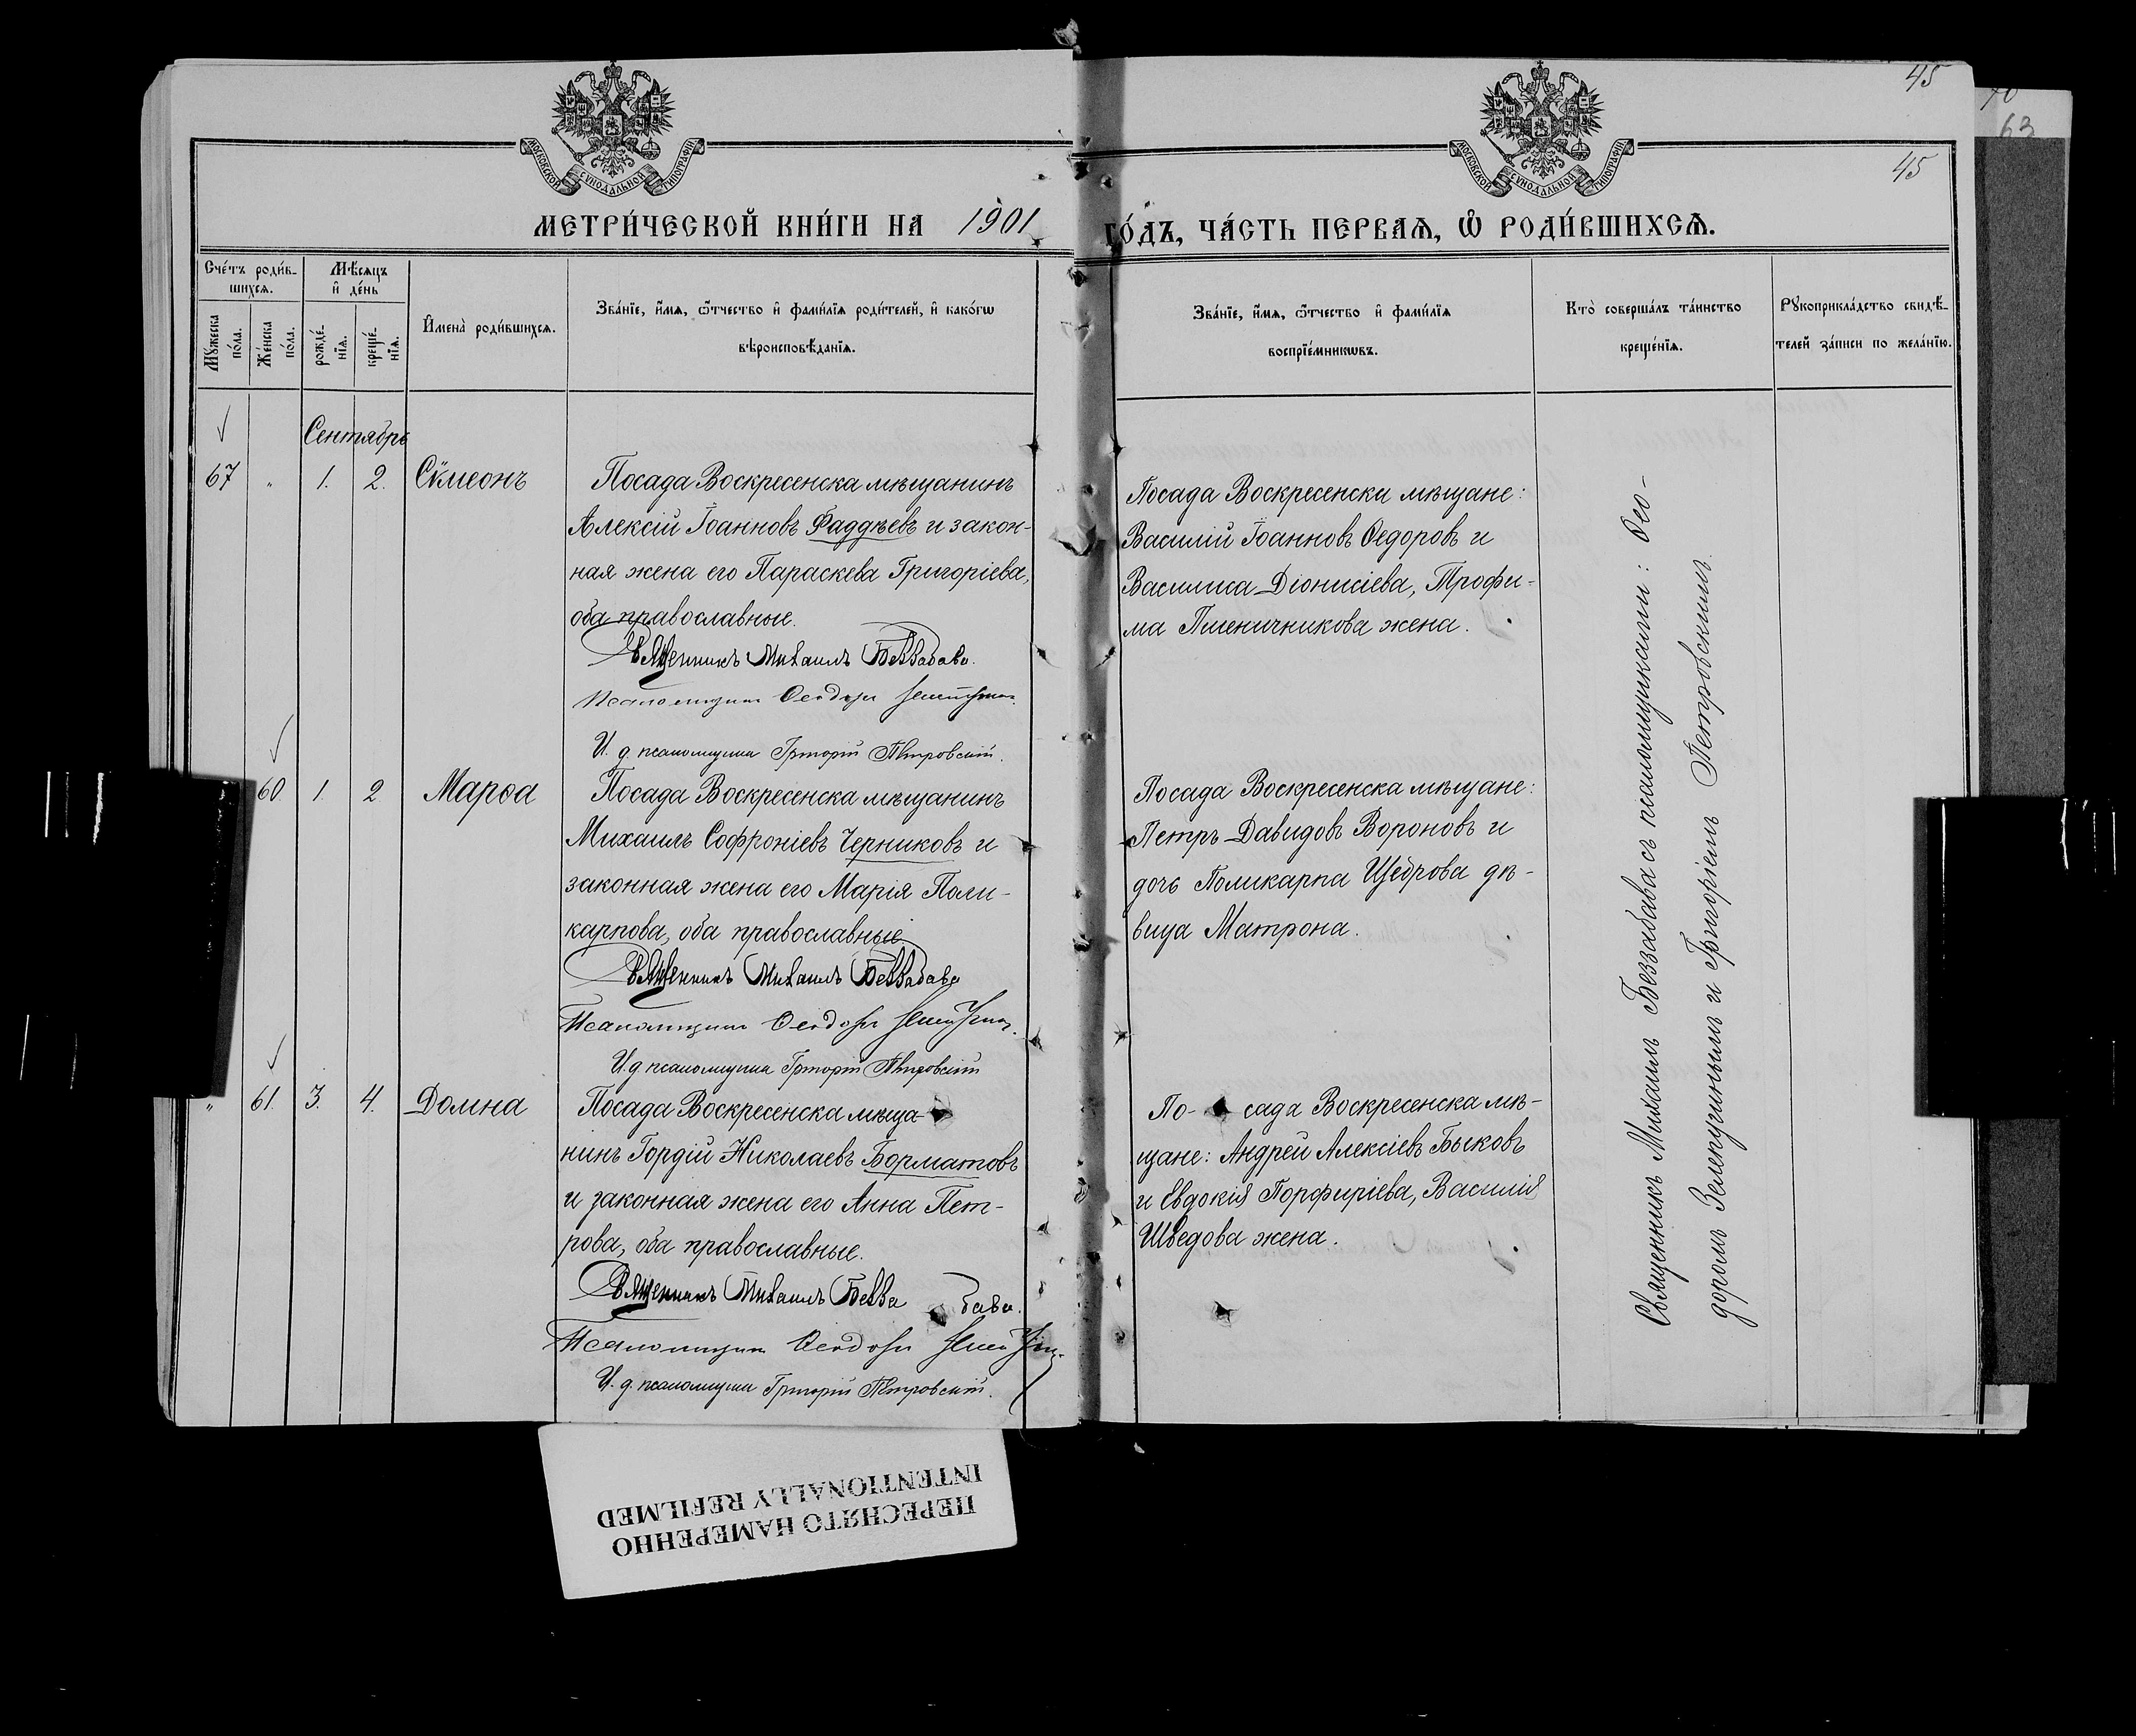 45
70
63
45
МОСКОВСКОЙ СѴНОДАЛЬНОЙ ТИПОГРАФІИ
МОСКОВСКОЙ СѴНОДАЛЬНОЙ ТИПОГРАФІИ
МЕТРИ́ЧЕСКОЙ КНИ́ГИ НА 1901
ГО́ДЪ, ЧА́СТЬ ПЕРВАѦ, Ѡ҆ РОДИ́ВШИХСѦ.
Сче́тъ роди́в-
шихсѧ.
Мѣ́сѧцъ
и҆ де́нь
Мꙋ́жеска
по́ла.
Же́нска
по́ла.
рожде́-
нїѧ.
креще́-
нїѧ.
И҆мена̀ роди́вшихсѧ.
Зва́нїе, и҆́мѧ, ѻ҆́тчество и҆ фами́лїѧ роди́телей, и҆ како́гѡ
вѣроисповѣ́данїѧ.
Зва́нїе, и҆́мѧ, ѻ҆́тчество и҆ фами́лїѧ
воспрїе́мникѡвъ.
Кто̀ соверша́лъ та́инство
креще́нїѧ.
Рꙋкоприкла́дство свидѣ́-
телей за́писи по жела́нїю.
Сентябрь
67 " 1. 2. Сѵмеонъ
Посада Воскресенска мѣщанинъ
Алексій Іоанновъ Фаддѣевъ и закон-
ная жена его Параскева Григоріева,
оба православные.
Священникъ Михаилъ Беззабава.
Псаломщикъ Ѳеодоръ
И. д. псаломщика Григорій Петровскій.
Посада Воскресенска мѣщане:
Василій Іоанновъ Ѳедоровъ и
Василиса Діонисіева, Трофи-
ма Пшеничникова жена.
60. 1. 2 Марѳа
Посада Воскресенска мѣщанинъ
Михаилъ Софроніевъ Черниковъ и
законная жена его Марія Поли-
карпова, оба православные
Священникъ Михаилъ Беззабава
Псаломщикъ Ѳеодоръ
И. д. псаломщика Григорій Петровскій
Посада Воскресенска мѣщане:
Петръ Давидовъ Вороновъ и
дочь Поликарпа Щеброва дѣ-
вица Матрона.
" 61. 3. 4. Домна
Посада Воскресенска мѣща-
нинъ Гордій Николаевъ Борматовъ
и законная жена его Анна Пет-
рова, оба православные.
Священникъ Михаилъ Безза бава.
Псаломщикъ Ѳеодоръ
И. д. псаломщика Григорій Петровскій.
По- сада Воскресенска мѣ-
щане: Андрей Алексіевъ Быковъ
и Евдокія Порфиріева, Василія
Шведова жена.
Священникъ Михаилъ Беззабава съ псаломщиками: Ѳео-
доромъ Зелекушнымъ и Григоріемъ Петровскимъ.
ПЕРЕСНЯТО НАМЕРЕННО
INTENTIONALLY REFILMED